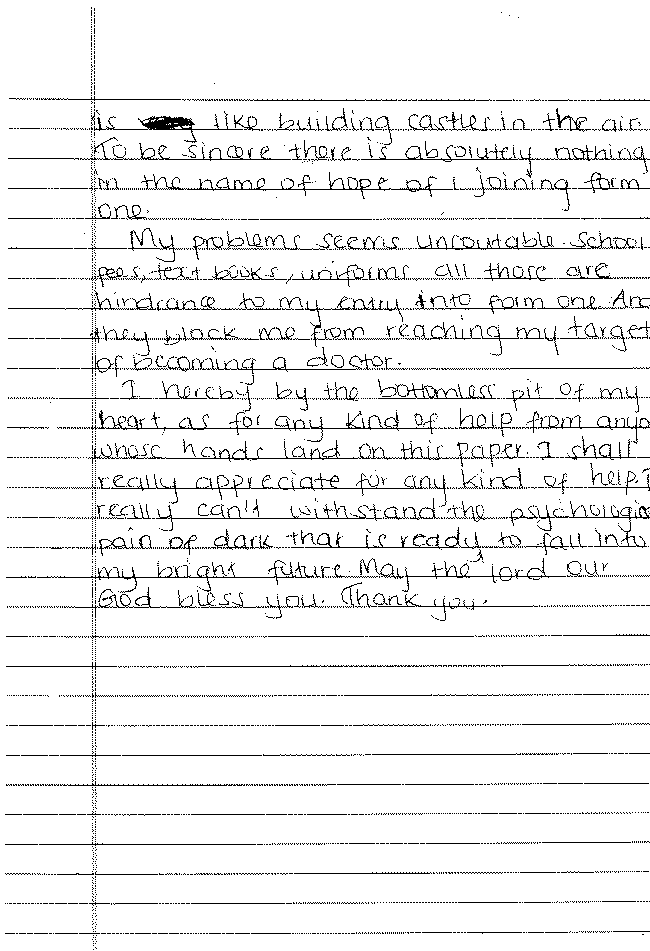 is like building castles in the air.
To be sincere there is absolutely nothing
in the name of hope of i joining form
one.
My problems seems uncountable. School
fees, text books, uniforms all those are
hindrance to my entry into form one And
they block me from reaching my target
of becoming a doctor.
I hereby by the bottomless pit of my
heart, as for any kind of help from anyo
whose hands land on this paper. I shall
really appreciate for any kind of help. I
really can't withstand the psychologic
pain of dark that is ready to fall into
my bright future. May the lord our
God bless you. Thank you.